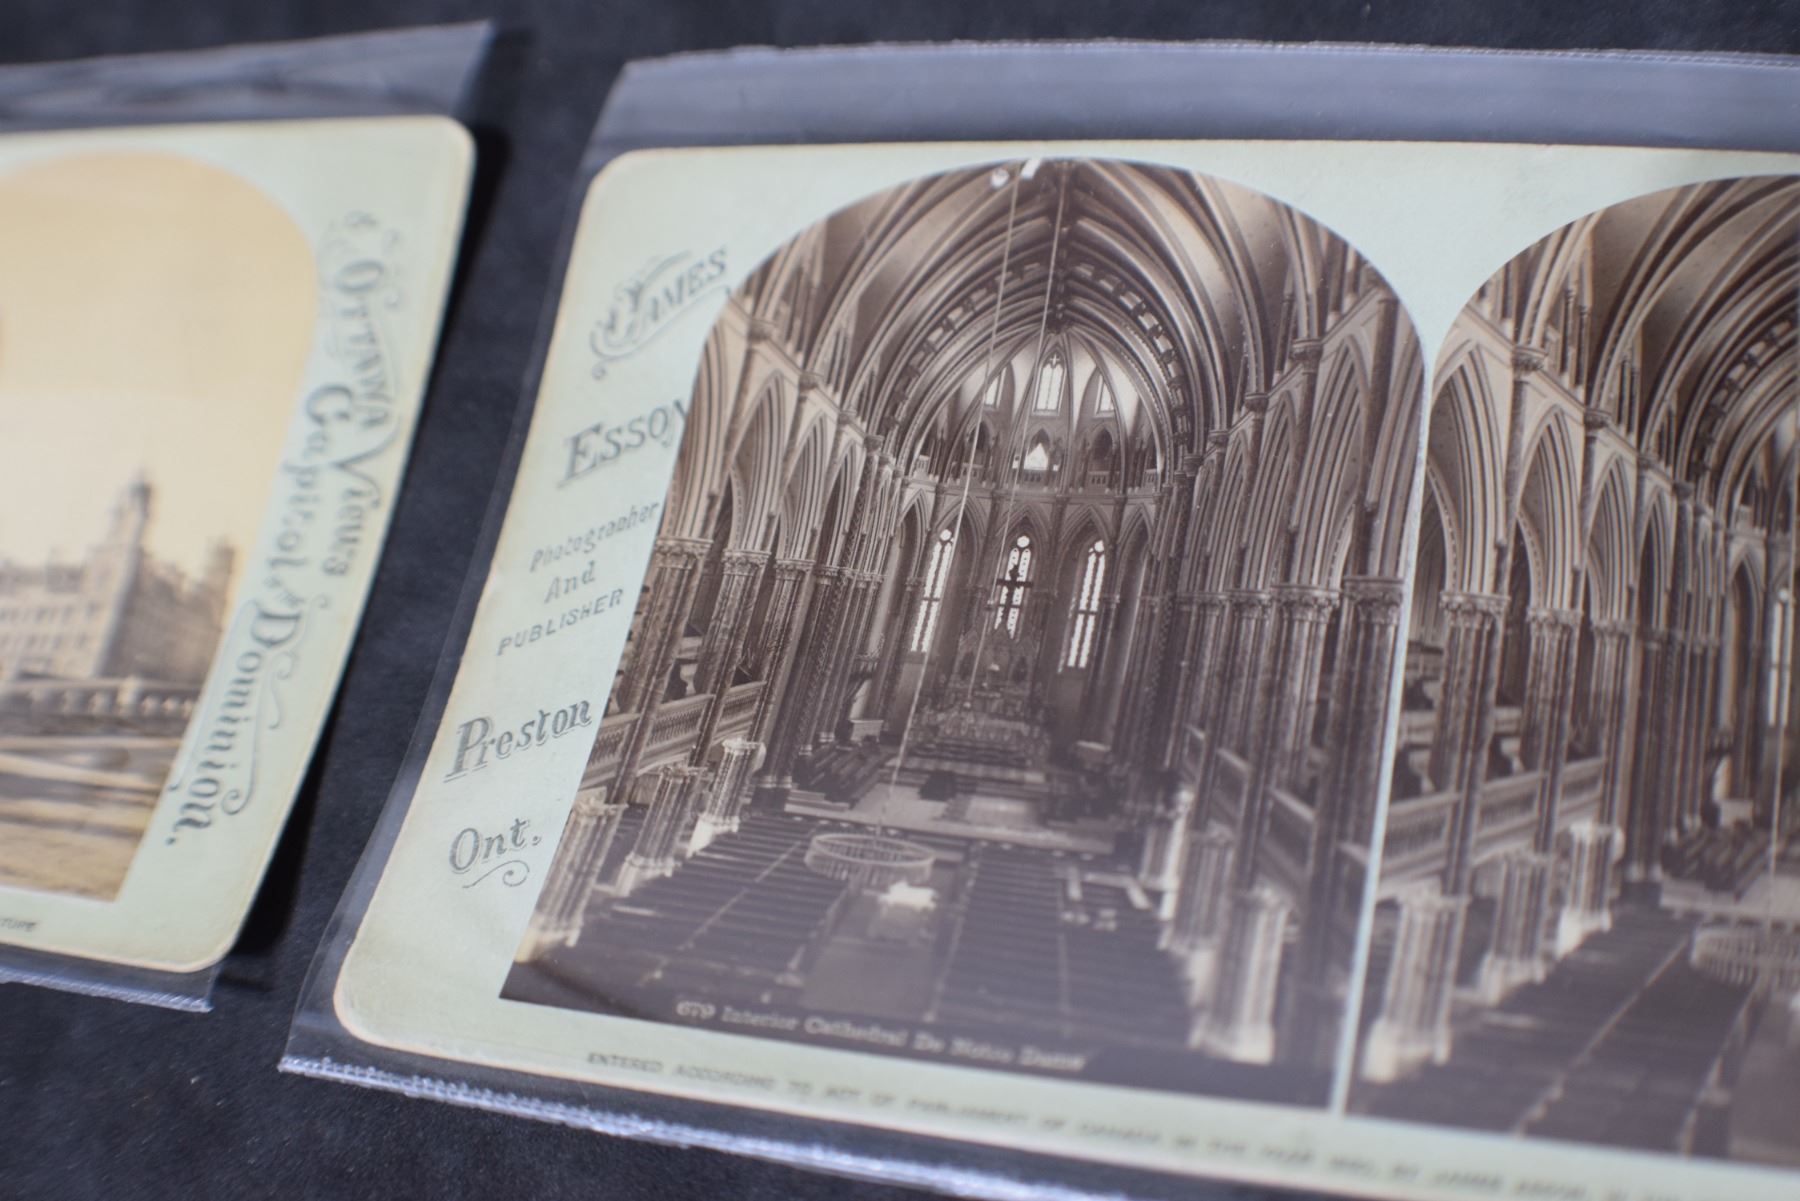 Ottawa Views
Capitol of the Dominion.
TURE
James
Esson
Photographer
And
PUBLISHER
Preston
Ont.
679 Interior Cathedral De Notre Dame
ENTERED ACCORDING TO ACT OF PARLIAMENT OF CANADA IN THE YEAR BY JAMES ESSON